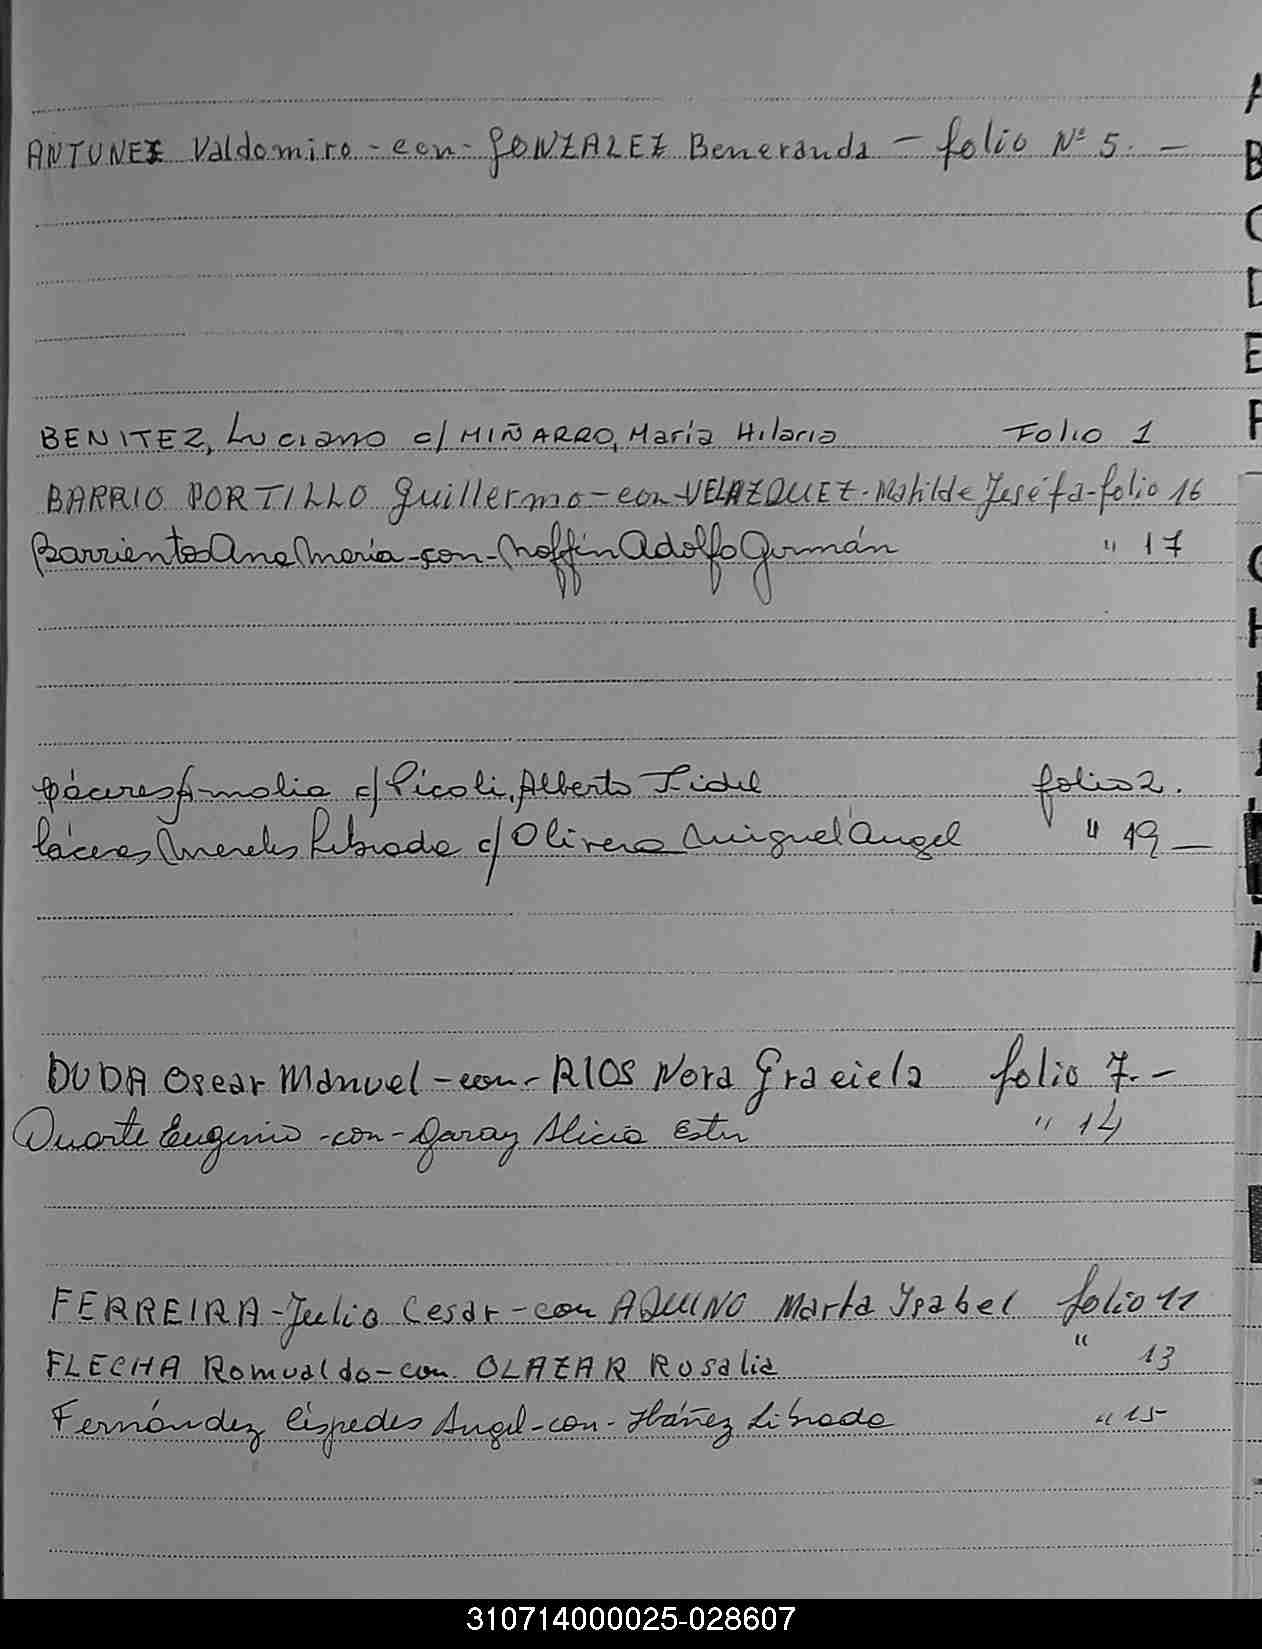 ANTUNEZ Valdomiro - con - GONZALEZ Beneranda - folio Nº 5. -
BENITEZ, Luciano c/ MIÑARRO, María Hilaria Folio 1
BARRIO PORTILLO Guillermo - con - VELAZQUEZ - Matilde Joséfa - folio 16
Barrientos Ana María - con - Noffin Adolfo Germán " 17
Cáceres Amalia c/ Picoli, Alberto Fidel folio 2.
Cáceres Mereles Librada c/ Olivera Miguel Angel " 19 -
DUDA Oscar Manuel - con - RIOS Nora Graciela folio 7. -
Duarte Eugenio - con - Garay Alicia Ester " 14
FERREIRA - Julio Cesar - con AQUINO Marta Ysabel folio 11
FLECHA Romualdo - con. OLAZAR Rosalia " 13
Fernández Céspedes Angel - con - Ibáñez Librada " 15
A
B
C
D
E
F
G
H
I
J
310714000025-028607